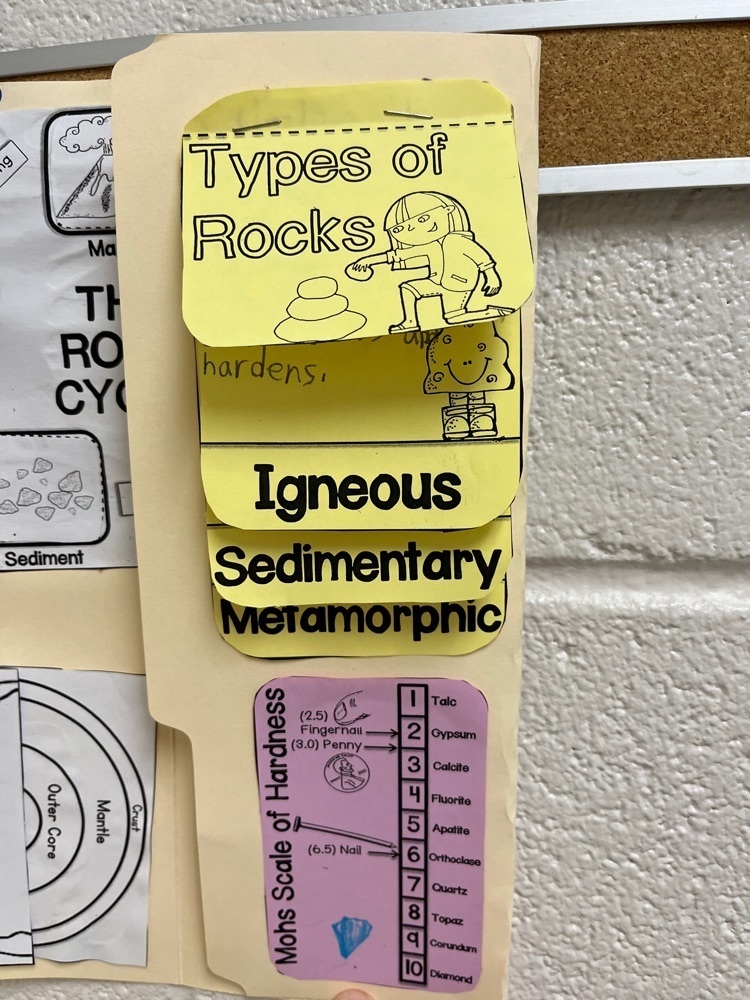 Types of
Rocks
up
hardens.
Igneous
Sedimentary
Metamorphic
Mohs Scale of Hardness
(2.5)
Fingernail
(3.0) Penny
(6.5) Nail
1 Talc
2 Gypsum
3 Calcite
4 Fluorite
5 Apatite
6 Orthoclase
7 Quartz
8 Topaz
9 Corundum
10 Diamond
ng
Ma
TH
RO
CYC
Sediment
Outer Core
Mantle
Crust